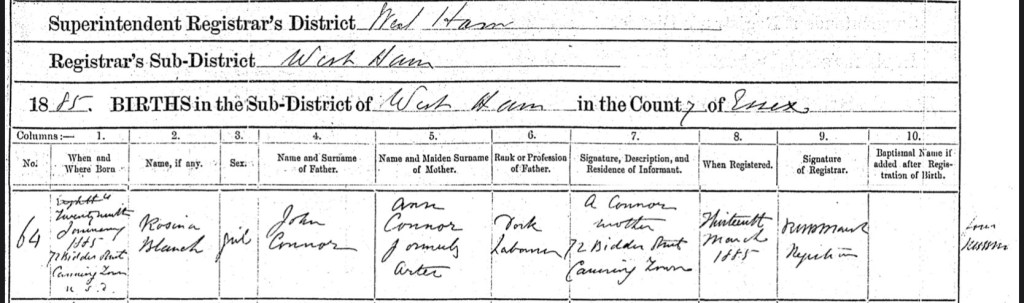 Superintendent Registrar's District West Ham
Registrar's Sub-District West Ham
1885. BIRTHS in the Sub-District of West Ham in the County of Essex
Columns:— 1. 2. 3. 4. 5. 6. 7. 8. 9. 10.
No. When and Where Born Name, if any. Sex. Name and Surname of Father. Name and Maiden Surname of Mother. Rank or Profession of Father. Signature, Description, and Residence of Informant. When Registered. Signature of Registrar. Baptismal Name if added after Registration of Birth.
64
Twenty ninth
January
1885
72 Bidder Street
Canning Town
U.S.D.
Rosina
Blanch
girl
John
Connor
Ann
Connor
formerly
Arter
Dock
Labourer
A Connor
mother
72 Bidder Street
Canning Town
March
1885
Registrar